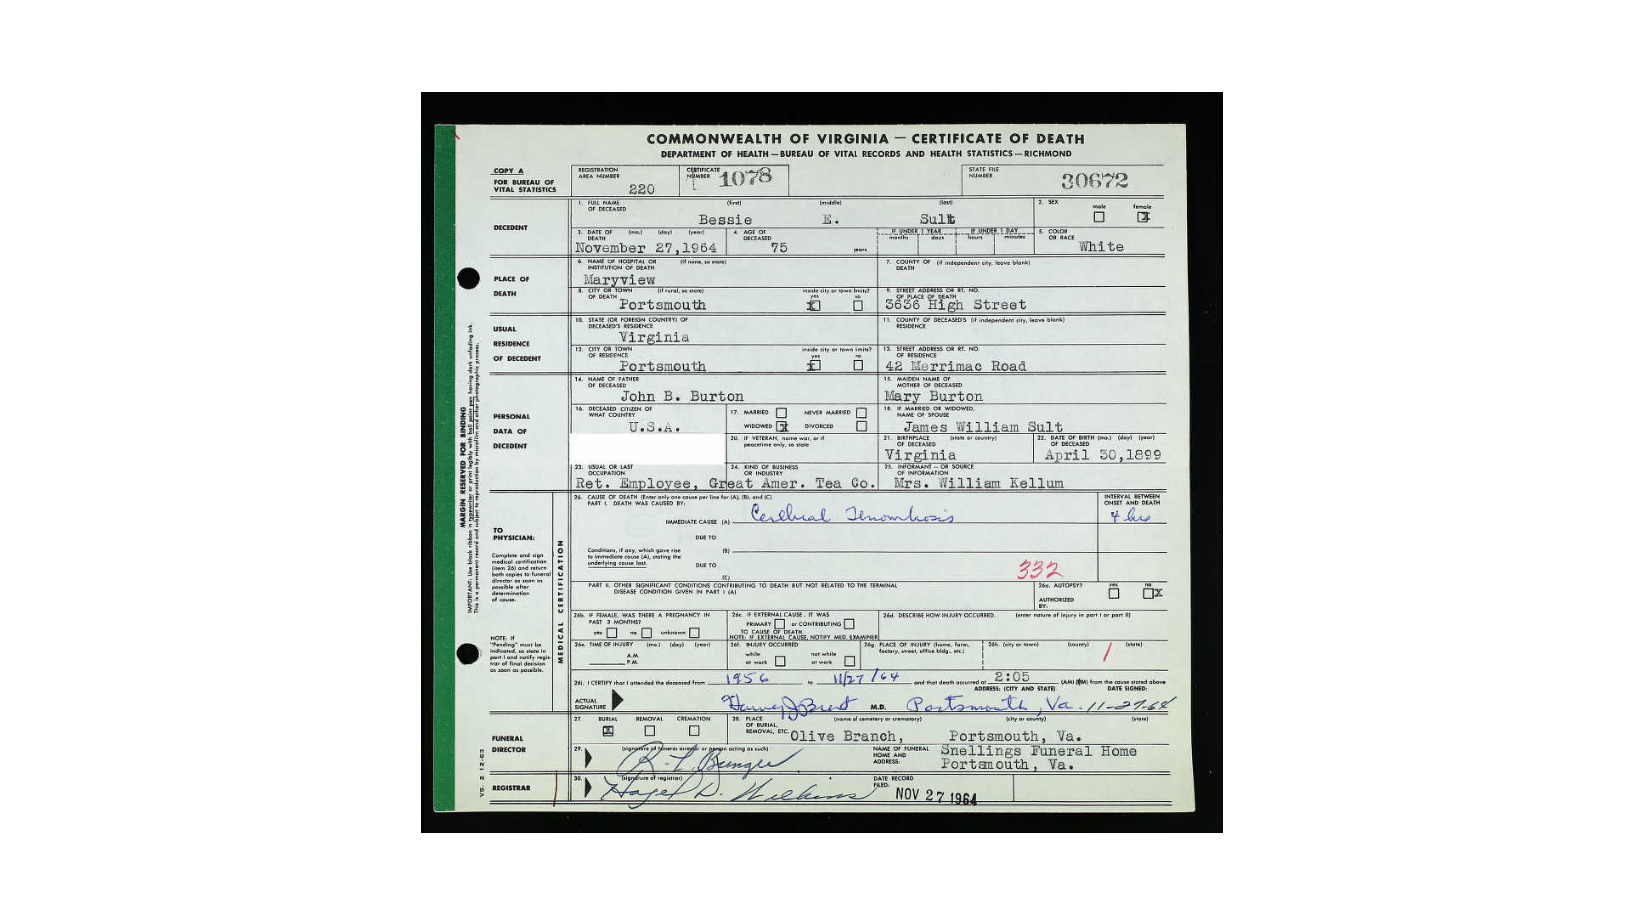 COMMONWEALTH OF VIRGINIA — CERTIFICATE OF DEATH
DEPARTMENT OF HEALTH — BUREAU OF VITAL RECORDS AND HEALTH STATISTICS — RICHMOND
COPY A
FOR BUREAU OF VITAL STATISTICS
REGISTRATION AREA NUMBER 220
CERTIFICATE NUMBER 1078
STATE FILE NUMBER 30672
DECEDENT
1. FULL NAME OF DECEASED (first) (middle) (last)
Bessie E. Sult
2. SEX male female X
3. DATE OF DEATH (mo.) (day) (year)
November 27,1964
4. AGE OF DECEASED 75 years
IF UNDER 1 YEAR months days
IF UNDER 1 DAY hours minutes
5. COLOR OR RACE White
PLACE OF DEATH
6. NAME OF HOSPITAL OR INSTITUTION OF DEATH (if none, so state)
Maryview
7. COUNTY OF DEATH (if independent city, leave blank)
8. CITY OR TOWN OF DEATH (if rural, so state)
Portsmouth
inside city or town limits? yes no
9. STREET ADDRESS OR RT. NO. OF PLACE OF DEATH
3636 High Street
USUAL RESIDENCE OF DECEDENT
10. STATE (OR FOREIGN COUNTRY) OF DECEASED'S RESIDENCE
Virginia
11. COUNTY OF DECEASED'S RESIDENCE (if independent city, leave blank)
12. CITY OR TOWN OF RESIDENCE
Portsmouth
inside city or town limits? yes no
13. STREET ADDRESS OR RT. NO. OF RESIDENCE
42 Merrimac Road
PERSONAL DATA OF DECEDENT
14. NAME OF FATHER OF DECEASED
John B. Burton
15. MAIDEN NAME OF MOTHER OF DECEASED
Mary Burton
16. DECEASED CITIZEN OF WHAT COUNTRY
U.S.A.
17. MARRIED NEVER MARRIED
WIDOWED X DIVORCED
18. IF MARRIED OR WIDOWED, NAME OF SPOUSE
James William Sult
20. IF VETERAN, name war, or if peacetime only, so state
21. BIRTHPLACE OF DECEASED (state or country)
Virginia
22. DATE OF BIRTH OF DECEASED (mo.) (day) (year)
April 30,1899
23. USUAL OR LAST OCCUPATION
24. KIND OF BUSINESS OR INDUSTRY
Ret. Employee, Great Amer. Tea Co.
25. INFORMANT — OR SOURCE OF INFORMATION
Mrs. William Kellum
MARGIN RESERVED FOR BINDING
TO PHYSICIAN:
Complete and sign medical certification (item 26) and return both copies to funeral director as soon as possible after determination of cause.
NOTE: If "Pending" must be indicated, so state in part I and notify registrar of final decision as soon as possible.
MEDICAL CERTIFICATION
26. CAUSE OF DEATH (Enter only one cause per line for (A), (B), and (C).
PART I. DEATH WAS CAUSED BY:
INTERVAL BETWEEN ONSET AND DEATH
IMMEDIATE CAUSE (A) Cerebral
4 hrs
DUE TO
(B)
Conditions, if any, which gave rise to immediate cause (A), stating the underlying cause last.
DUE TO
(C)
332
PART II. OTHER SIGNIFICANT CONDITIONS CONTRIBUTING TO DEATH BUT NOT RELATED TO THE TERMINAL DISEASE CONDITION GIVEN IN PART I (A)
26a. AUTOPSY? yes no X
AUTHORIZED BY:
26b. IF FEMALE, WAS THERE A PREGNANCY IN PAST 3 MONTHS?
yes no unknown
26c. IF EXTERNAL CAUSE, IT WAS
PRIMARY or CONTRIBUTING
TO CAUSE OF DEATH
NOTE: IF EXTERNAL CAUSE, NOTIFY MED. EXAMINER
26d. DESCRIBE HOW INJURY OCCURRED. (enter nature of injury in part I or part II)
26e. TIME OF INJURY (mo.) (day) (year)
A.M.
P.M.
26f. INJURY OCCURRED
while at work not while at work
26g. PLACE OF INJURY (home, farm, factory, street, office bldg., etc.)
26h. (city or town) (county) (state)
26i. I CERTIFY that I attended the deceased from 1956 to 11/27/64 and that death occurred at 2:05 (AM) from the cause stated above
ADDRESS: (CITY AND STATE) DATE SIGNED:
ACTUAL SIGNATURE M.D. Portsmouth, Va. 11-27-64
FUNERAL DIRECTOR
27. BURIAL REMOVAL CREMATION
X
28. PLACE OF BURIAL, REMOVAL, ETC. (name of cemetery or crematory) (city or county) (state)
Olive Branch, Portsmouth, Va.
29. (signature of funeral director or person acting as such)
NAME OF FUNERAL HOME AND ADDRESS:
Snellings Funeral Home
Portsmouth, Va.
REGISTRAR
30. (signature of registrar)
Hazel D. Wilkins
DATE RECORD FILED: NOV 27 1964